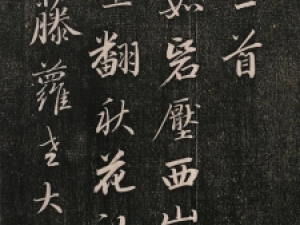 首
如壓西山
翻秋花
藤蘿大